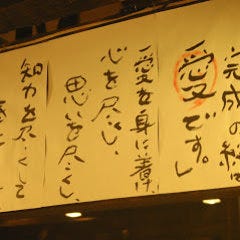 完成の絆
愛です。」
愛を身に着け、
心を尽くし、
思いを尽くし、
知力を尽くして